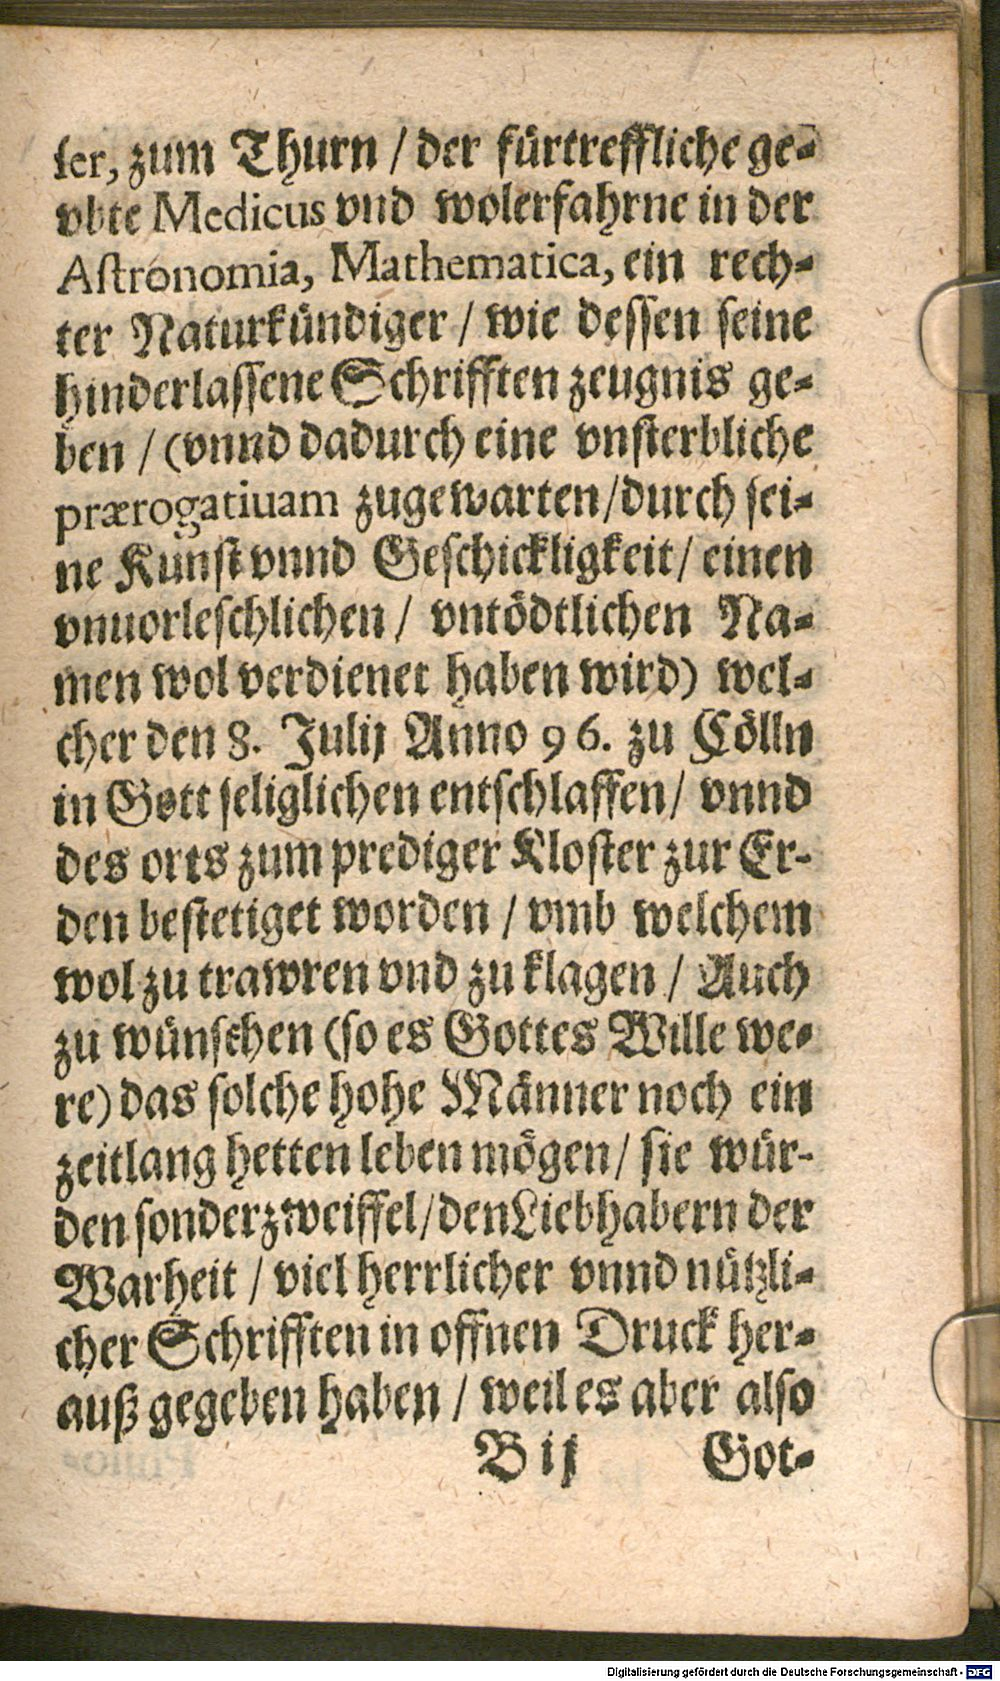 ser, zum Thurn / der fürtreffliche ge-
vbte Medicus vnd wolerfahrne in der
Astronomia, Mathematica, ein rech-
ter Naturkündiger / wie dessen seine
hinderlassene Schrifften zeugnis ge-
ben / (vnnd dadurch eine vnsterbliche
prærogatiuam zugewarten / durch sei-
ne Kunst vnnd Geschickligkeit / einen
vnuorleschlichen / vntödtlichen Na-
men wol verdienet haben wird) wel-
cher den 8. Julij Anno 96. zu Cölln
in Gott seliglichen entschlaffen / vnnd
des orts zum prediger Kloster zur Er-
den bestetiget worden / vmb welchem
wol zu trawren vnd zu klagen / Auch
zu wünschen (so es Gottes Wille we-
re) das solche hohe Männer noch ein
zeitlang hetten leben mögen / sie wür-
den sonder zweiffel / den Liebhabern der
Warheit / viel herrlicher vnnd nützli-
cher Schrifften in offnen Druck her-
auß gegeben haben / weil es aber also
B ij Got-
Digitalisierung gefördert durch die Deutsche Forschungsgemeinschaft - DFG